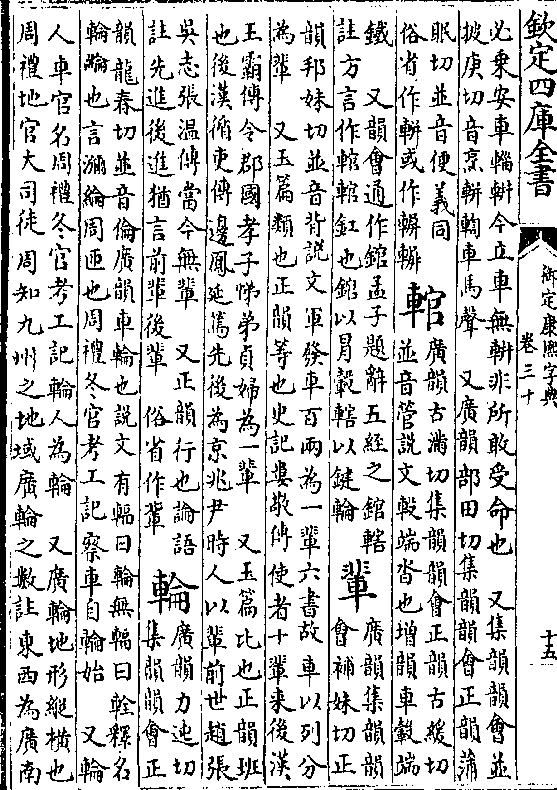 欽定四庫全書
御定康熙字典
卷三十
十五
必乗安車輜軿今立車無軿非所敢受命也 又集韻韻會並
披庚切音烹軿輷車馬聲 又廣韻部田切集韻韻會正韻蒲
眠切並音便義同
俗省作軿或作輧
輨
廣韻古滿切集韻韻會正韻古緩切
並音管説文轂端沓也增韻車轂端
鐵 又韻會通作錧孟子題辭五經之錧轄
註方言作輨輨釭也錧以冐轂轄以鍵輪
輩
廣韻集韻韻
會補妹切正
韻邦妹切並音背説文軍發車百兩為一輩六書故車以列分
為輩 又玉篇類也正韻等也史記婁敬傳使者十輩来後漢
王霸傳令郡國孝子悌弟貞婦為一輩 又玉篇比也正韻班
也後漢循吏傳邊鳳延篤先後為京兆尹時人以輩前世趙張
吳志張温傳當今無輩 又正韻行也論語
註先進後進猶言前輩後輩 俗省作軰
輪
廣韻力迍切
集韻韻會正
韻龍春切並音倫廣韻車輪也説文有輻曰輪無輻曰輇釋名
輪綸也言彌綸周匝也周禮冬官考工記察車自輪始 又輪
人車官名周禮冬官考工記輪人為輪 又廣輪地形縱橫也
周禮地官大司徒周知九州之地域廣輪之數註東西為廣南